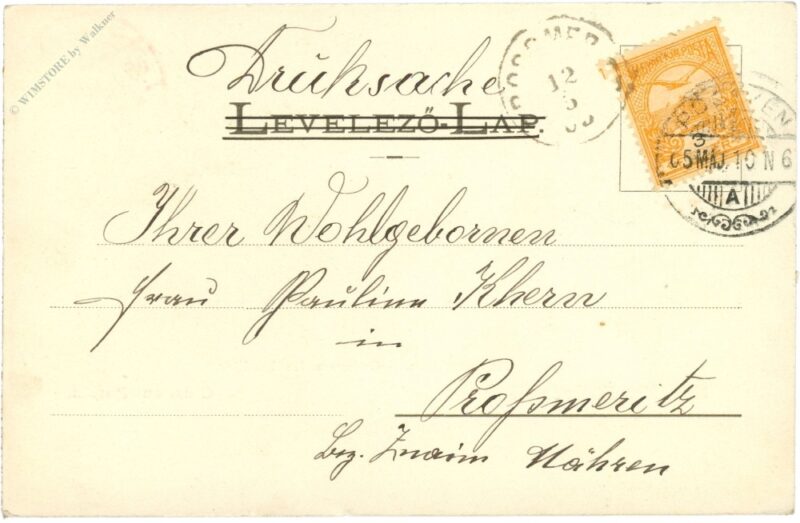 © WIMSTORE by Walkner
Druksache
LEVELEZŐ-LAP.
12
5
05 MAJ. 10 N 6
A
Ihrer Wohlgebornen
Frau Pauline Khern
in
Proßmeritz
Bez. Znaim Mähren